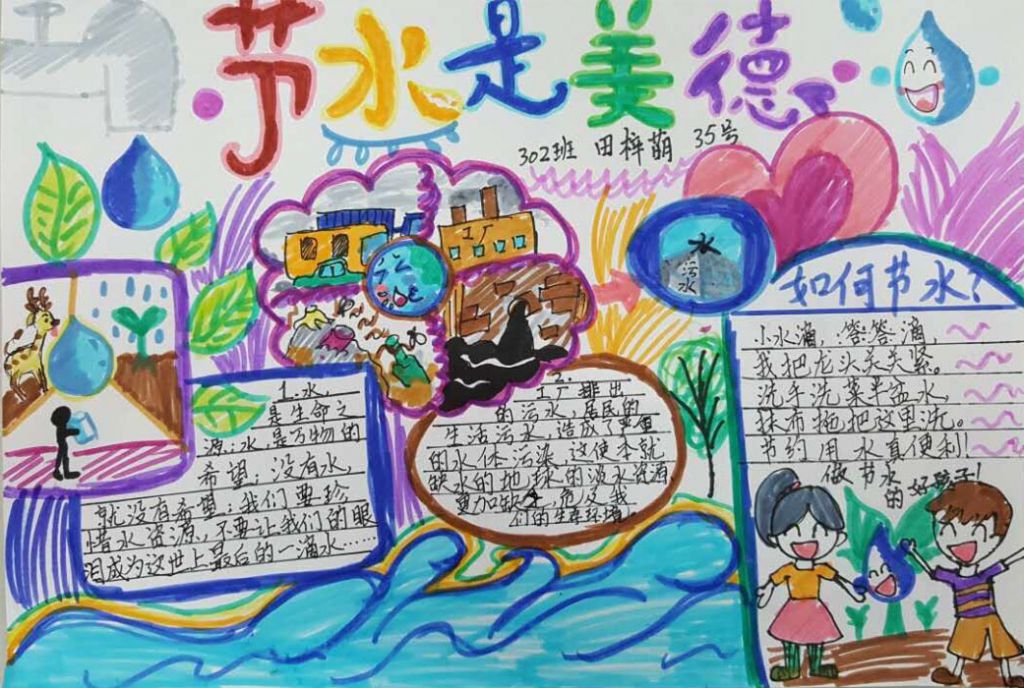 节水是美德
302班 田梓萌 35号
工厂
水
污水
1.水,
是生命之
源;水是万物的
希望;没有水,
就没有希望;我们要珍
惜水资源,不要让我们的眼
泪成为这世上最后的一滴水……
2.
工厂排出
的污水,居民的
生活污水,造成了严重
的水体污染,这使本就
缺水的地球的淡水资源
更加缺乏,危及我
们的生存环境。
如何节水?
小水滴,答答滴,
我把龙头关关紧。
洗手洗菜半盆水,
抹布拖把这里洗。
节约用水真便利!
做节水
的好孩子!